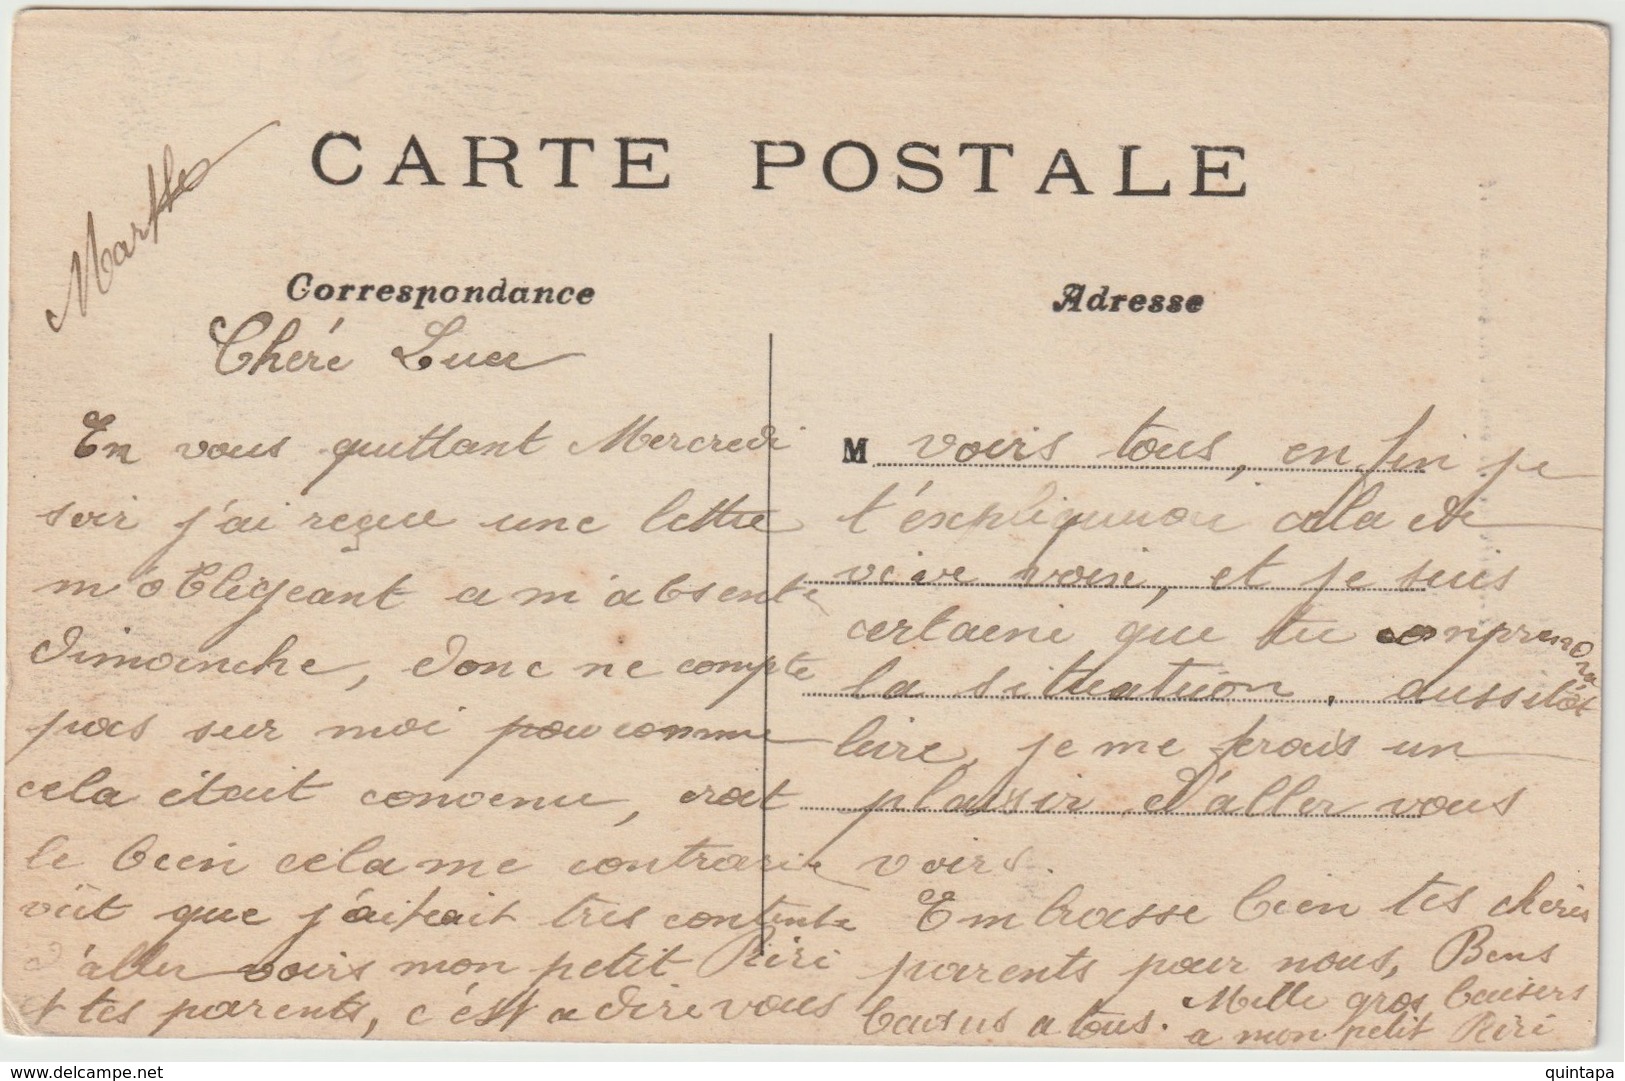 CARTE POSTALE
Marthe
Correspondance
Adresse
Cheré Luce
En vous quittant Mercredi
soir j'ai reçue une lettre
m'obligeant a m'absente
Dimanche, donc ne compte
pas sur moi pour comme
cela était convenu, croit
le bien cela me contrarie
vüt que j'aitait tres contente
d'aller voirs mon petit Riri
et tes parents, c'est a dire vous
M voirs tous, enfin je
t'éxpliquerai cela de
vive voix, et je suis
certaine que tu conprendra
la situation, aussitôt
lire, je me ferais un
plaisir d'aller vous
voirs.
Embrasse bien tes chéres
parents pour nous, Bons
baisers a tous. Mille gros baisers
a mon petit Riri
delcampe.net
quintapa